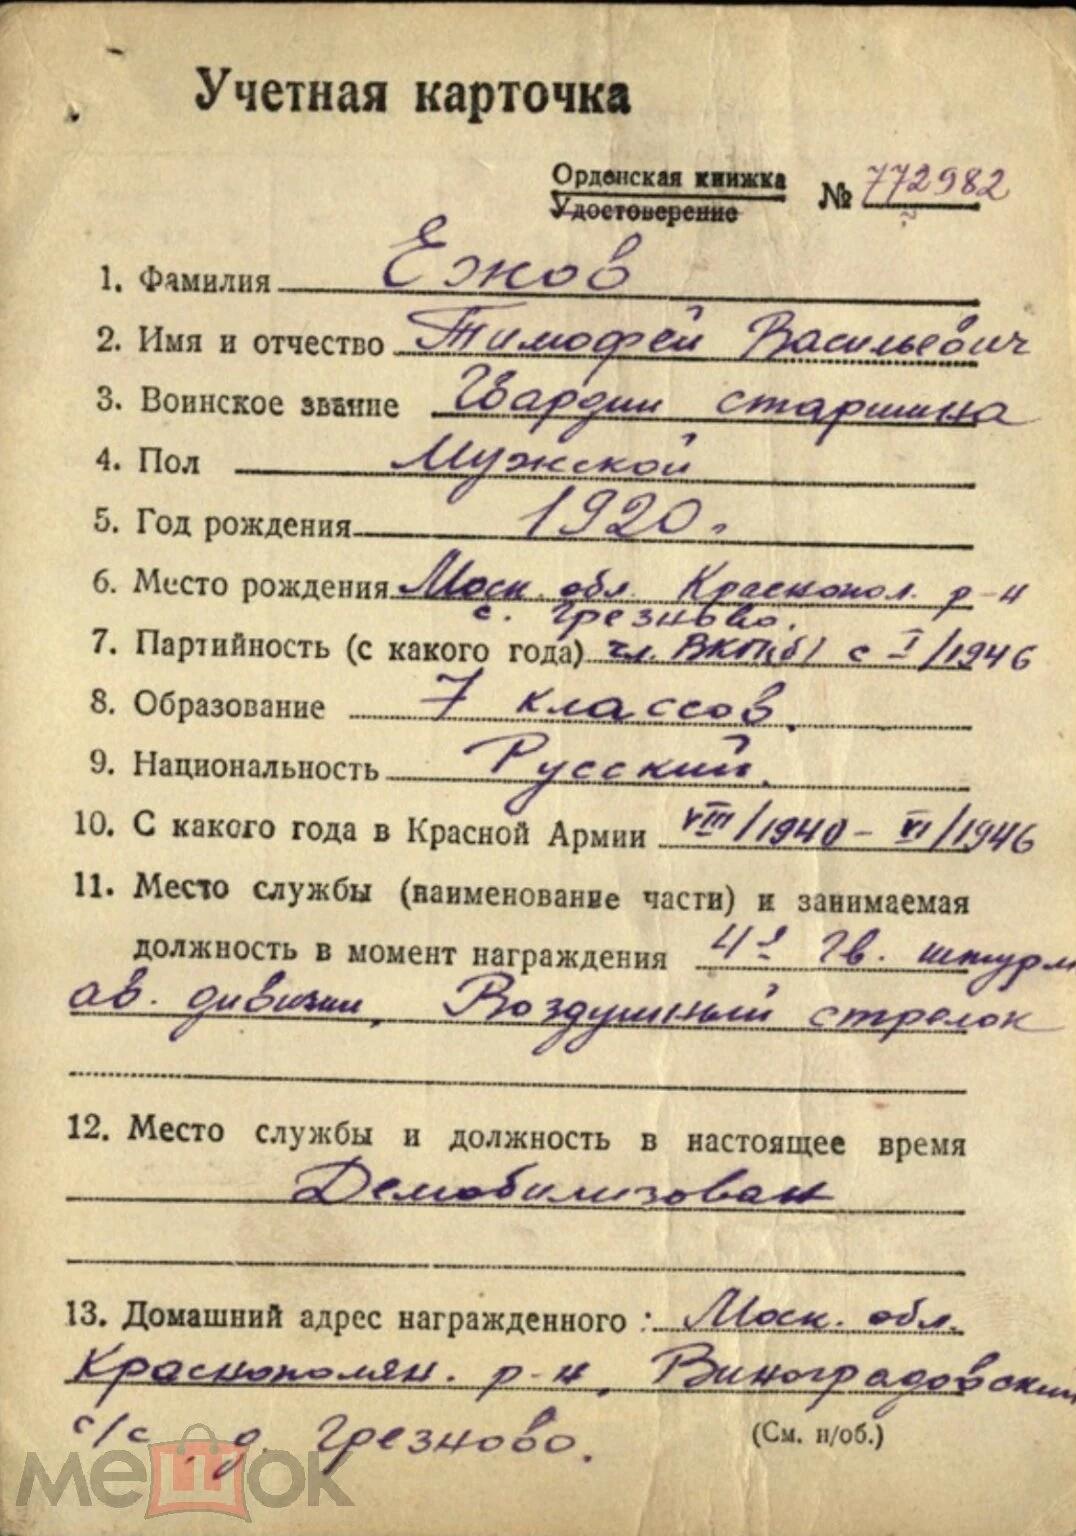 Учетная карточка
Орденская книжка
Удостоверение
№ 772982
1. Фамилия Ежов
2. Имя и отчество Тимофей Васильевич
3. Воинское звание Гвардии старшина
4. Пол Мужской
5. Год рождения 1920.
6. Место рождения Моск. обл. Краснопол. р-н
с. Грезново.
7. Партийность (с какого года) чл. ВКП(б) с I/1946
8. Образование 7 классов.
9. Национальность Русский.
10. С какого года в Красной Армии VIII/1940 – VI/1946
11. Место службы (наименование части) и занимаемая
должность в момент награждения Гв. штурм
ав. дивизии, Воздушный стрелок
12. Место службы и должность в настоящее время
Демобилизован
13. Домашний адрес награжденного : Моск. обл.
Краснополян. р-н, Виноградовский
с/с, д. Грезново.
(См. н/об.)
мешок